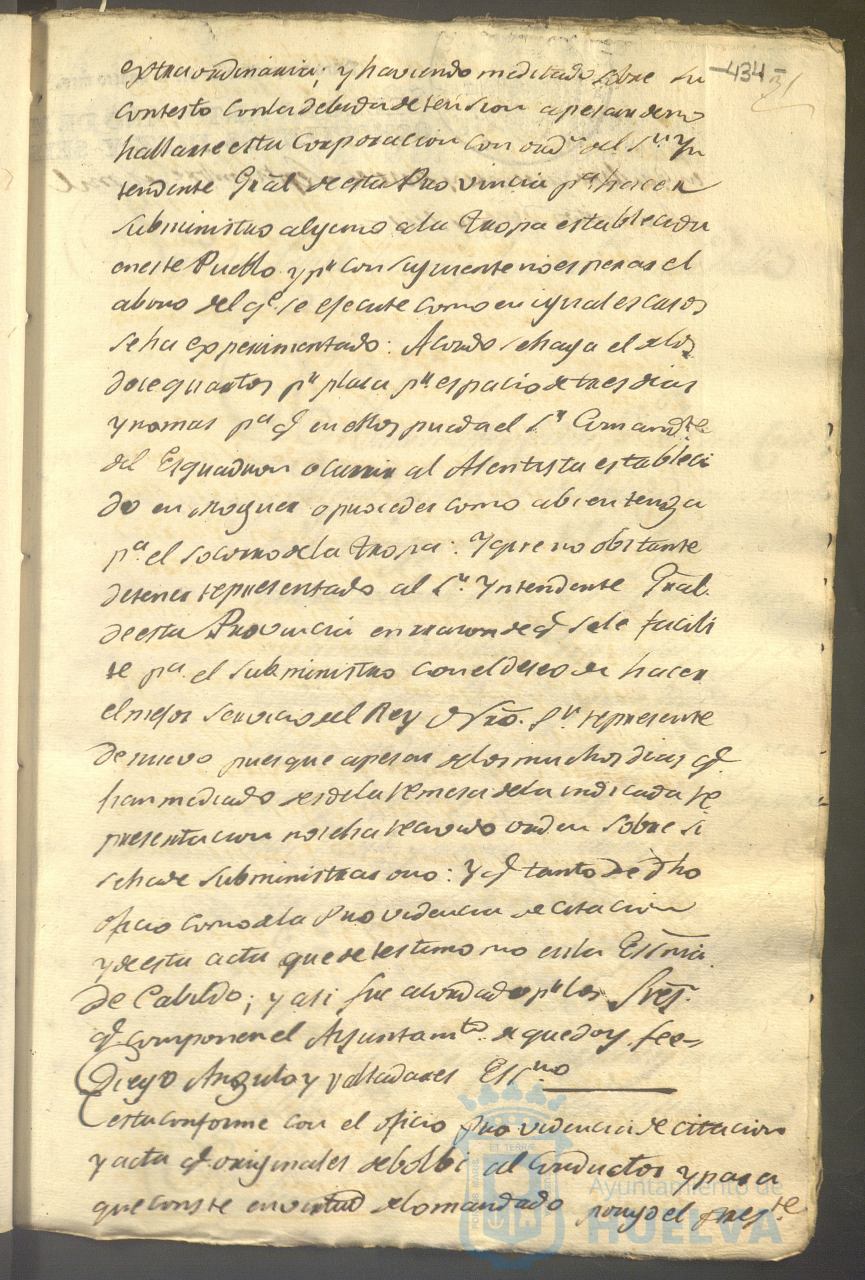 434
extraordinaria; y haviendo meditado sobre su
contesto con la debida detension apesar de no
hallarse esta Corporacion con ordn del Sr. Yn
tendente Gral de esta Provincia pa. hacer
subministro alguno ala tropa establecida
en este Pueblo y pr consiguiente no esperar el
abono del q. se ejecute como en iguales casos
se ha experimentado: Acordo se haga el de los
doce quartos pr plaza pr. espacio de tres dias
y no mas pa q. en ellos pueda el Sr Comandte
del Esquadron ocurrir al Asentista estableci
do en Moguer o proceder como abien tenga
pa. el socorro de la tropa: Y que no obstante
de tener representado al Sr. Yntendente Gral.
de esta Provincia en razon de q. se le facili
te pa. el subministro con el deseo de hacer
el mejor servicio del Rey Nro. Sr. represente
de nuevo pues que apesar de los muchos dias q.
han mediado desde la remesa de la indicada re
presentacion no se ha recivido orden sobre si
se hade subministrar o no: Y q. tanto de dho
oficio como de la Providencia de citacion
y de esta acta quede testimonio en la Esscria.
de Cabildo; y asi fue acordado pr los Sres.
q. componen el Ayuntamto. de que doy fee=
Diego Angulo y Valladares Essno
esta conforme con el oficio providencia de citacion
y acta q. originales debolbi al conductor y para
que conste en virtud de lo mandado pongo el preste
Ayuntamiento de
HUELVA